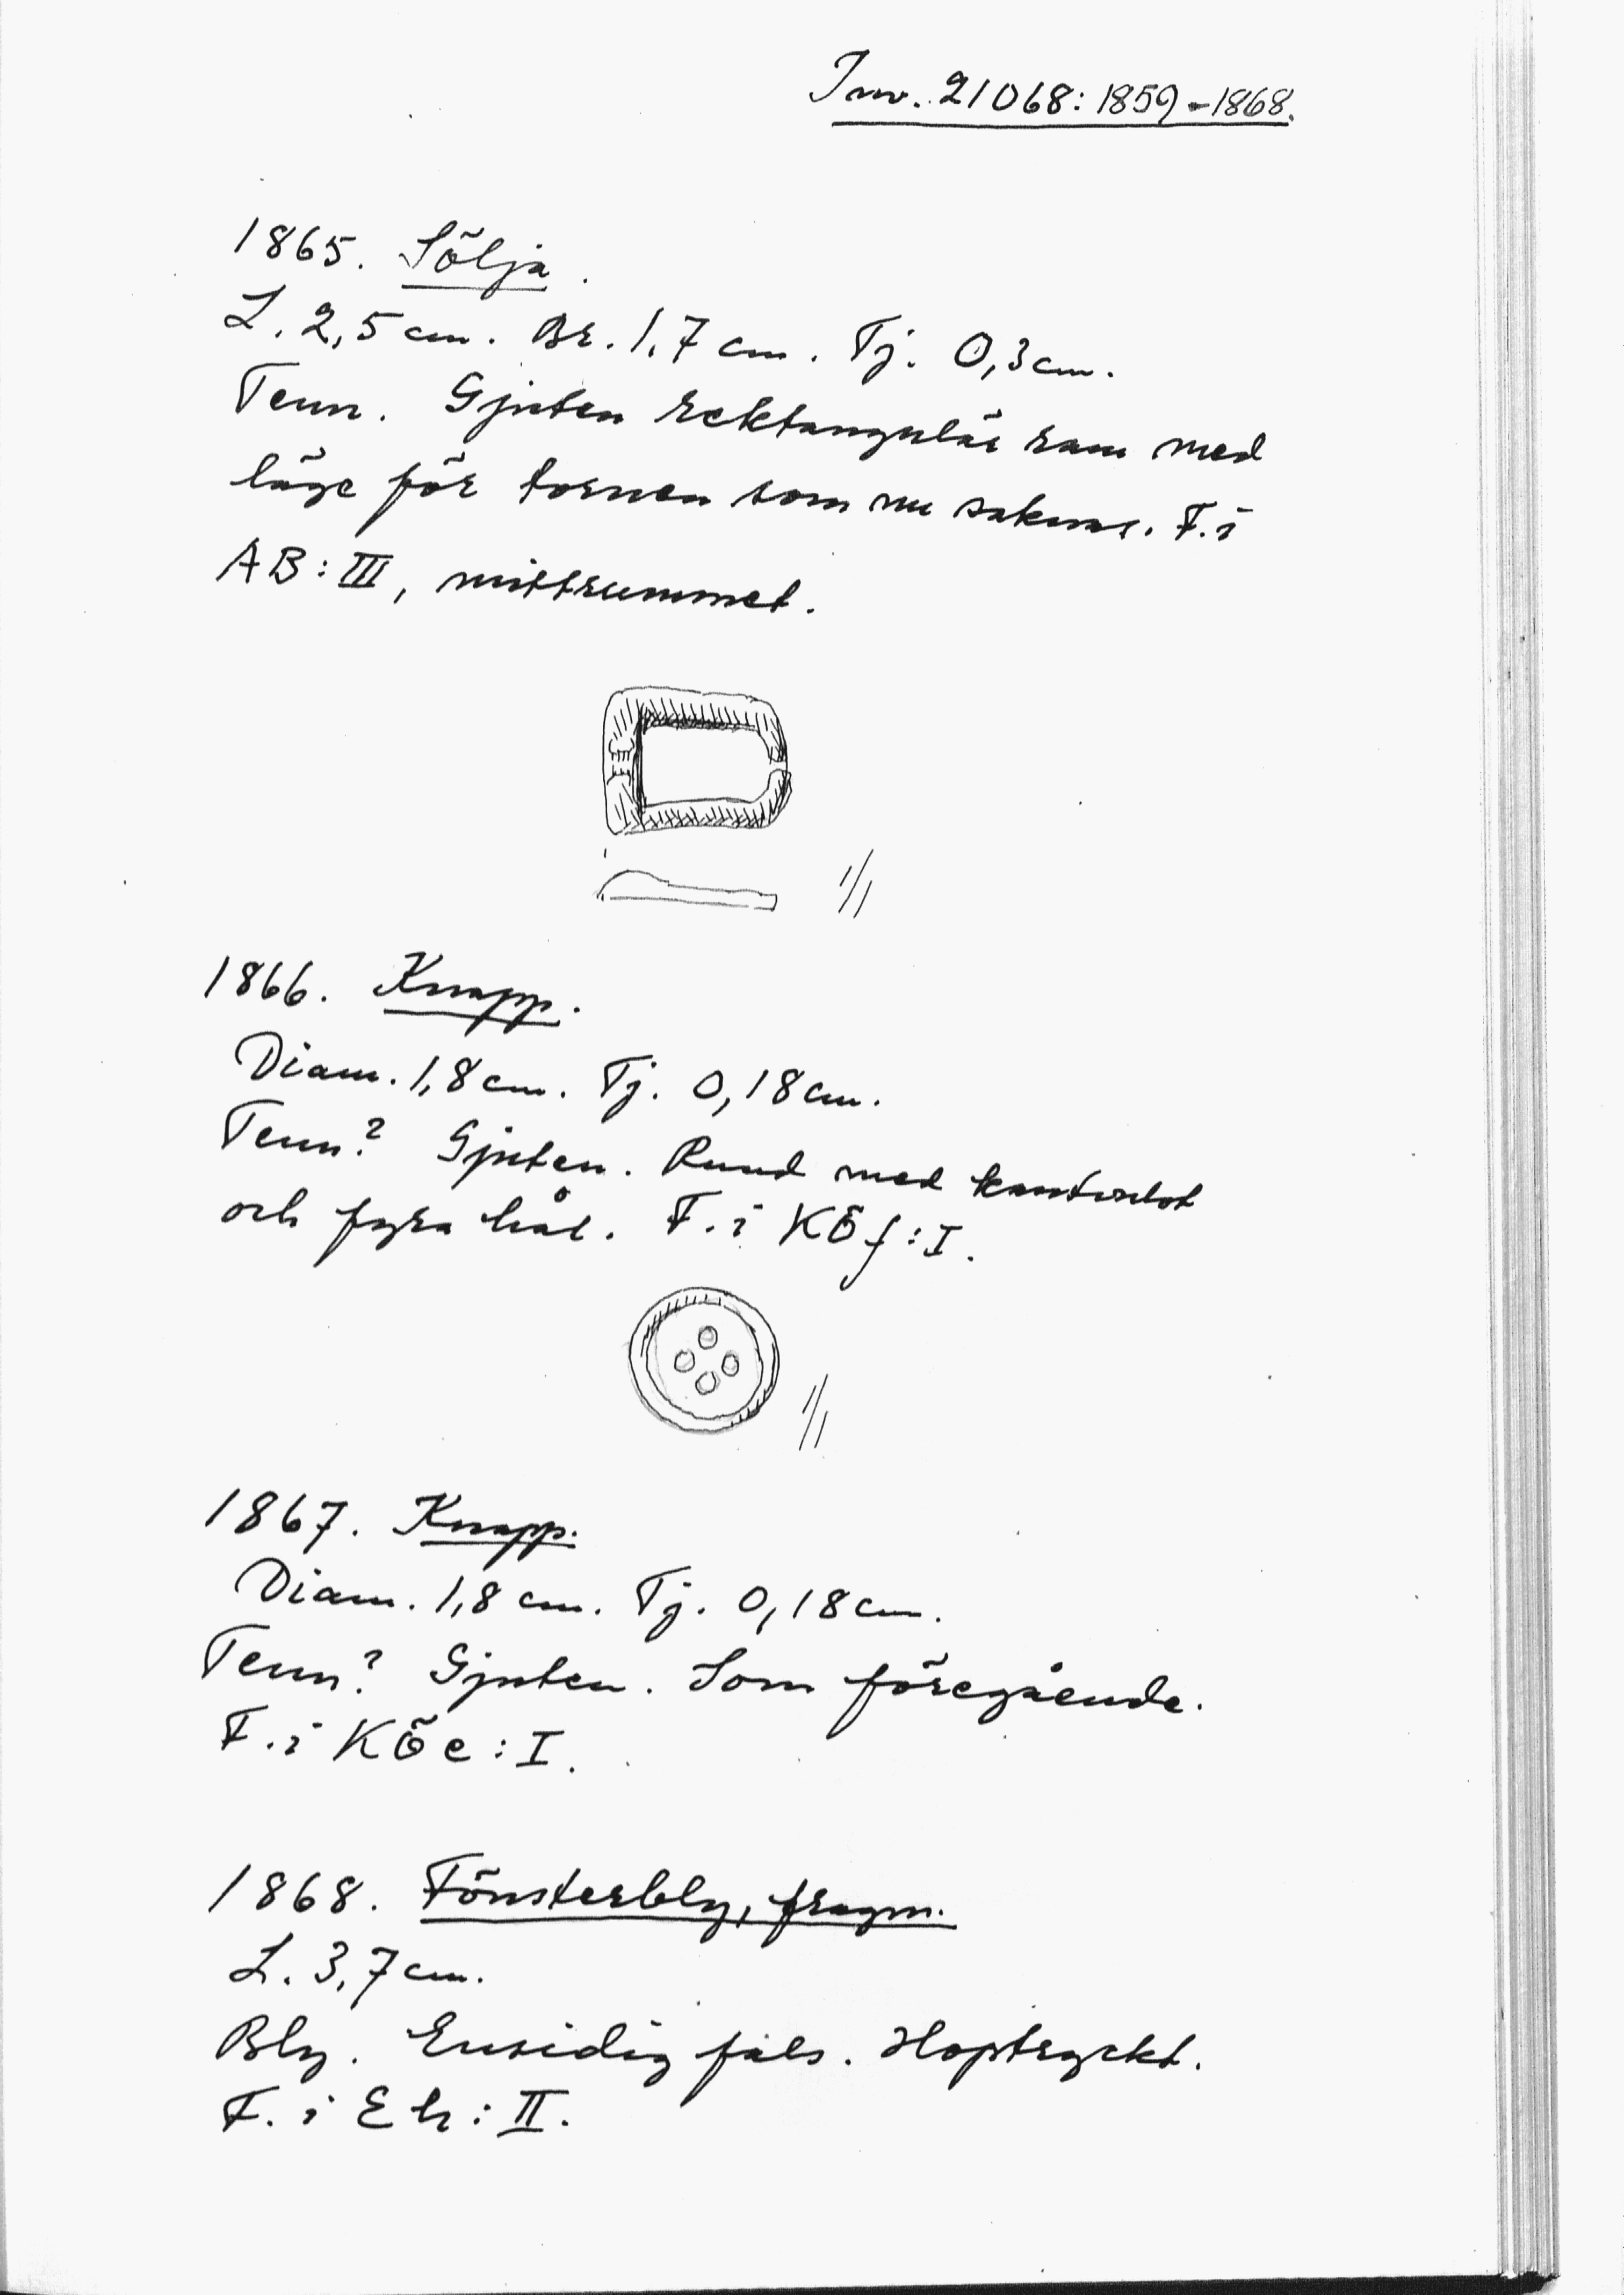 Inv. 21068:1859-1868.
1865. Sölja.
L. 2,5 cm. Br. 1,7 cm. Tj. 0,3 cm.
Tenn. Gjuten rektangulär ram med
läge för tornen som nu saknas. F. i
AB: III, mittrummet.
1/1
1866. Knapp.
Diam. 1,8 cm. Tj. 0,18 cm.
Tenn? Gjuten. Rund med kantvulst
och fyra hål. F. i KÖf: I.
1/1
1867. Knapp.
Diam. 1,8 cm. Tj. 0,18 cm.
Tenn? Gjuten. Som föregående.
F. i KÖe: I.
1868. Fönsterbly, fragm.
L. 3,7 cm.
Bly. Ensidig fals. Hoptryckt.
F. i Eh: II.